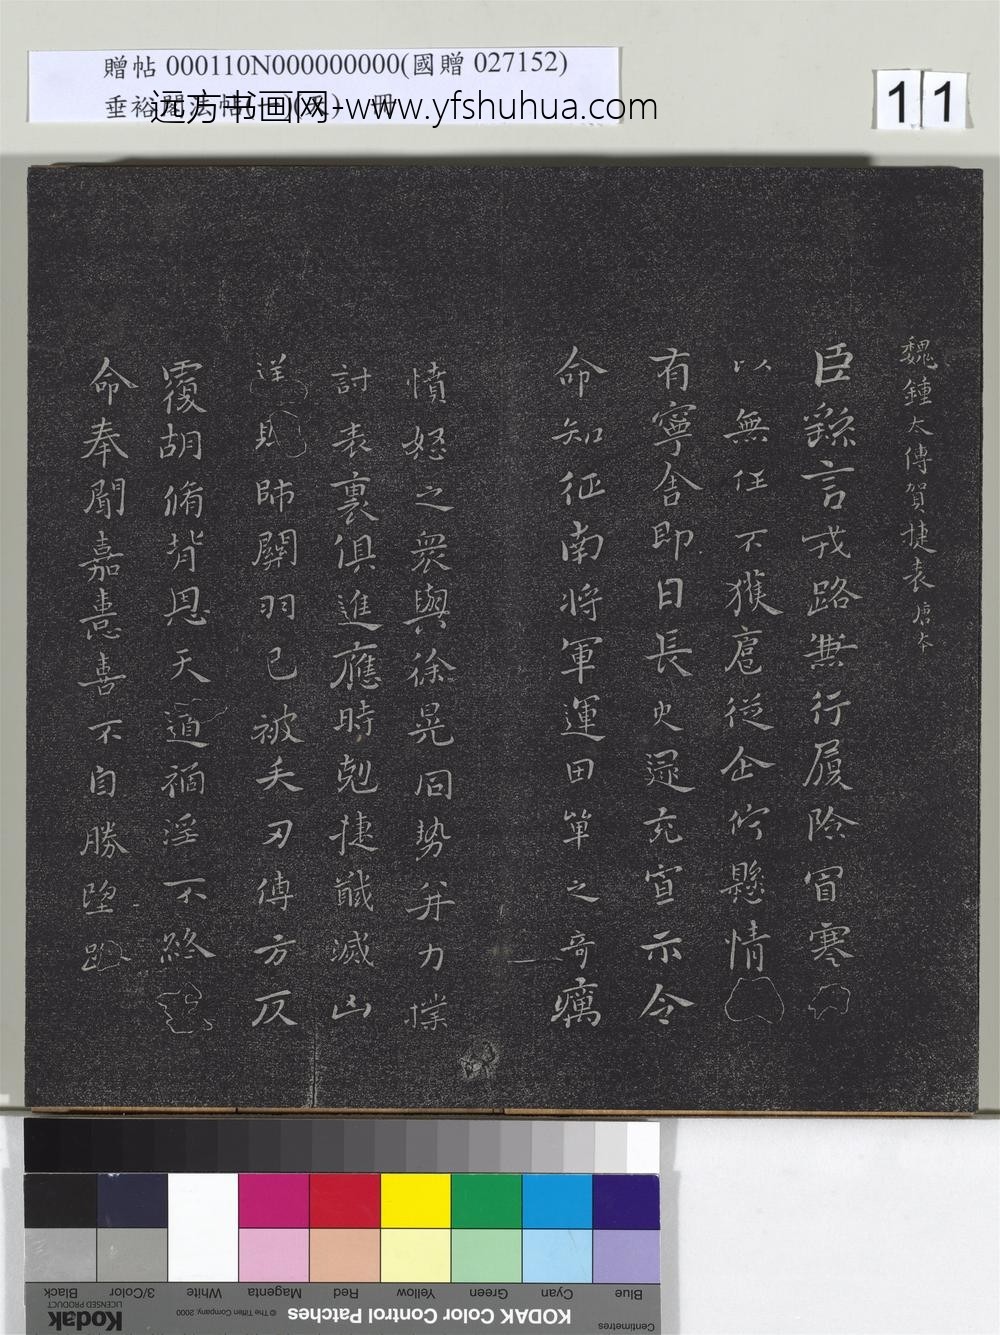 贈帖 000110N000000000(國贈 027152)
垂裕閣法帖 冊
远方书画网-www.yfshuhua.com
11
魏鍾太傅賀捷表 唐本
臣繇言戎路兼行履險冒寒
以無任不獲扈從企佇懸情
有寧舍即日長史逯充宣示令
命知征南將軍運田單之奇厲
憤怒之衆與徐晃同勢并力撲
討表裏俱進應時剋捷馘滅凶
逆賊帥關羽已被矢刃傅方反
覆胡脩背恩天道禍淫不終
命奉聞嘉憙喜不自勝望路
Blue
Cyan
Green
Yellow
Red
Magenta
White
3/Color
Black
Centimetres
KODAK Color Control Patches
© The Tiffen Company, 2000
Kodak
LICENSED PRODUCT